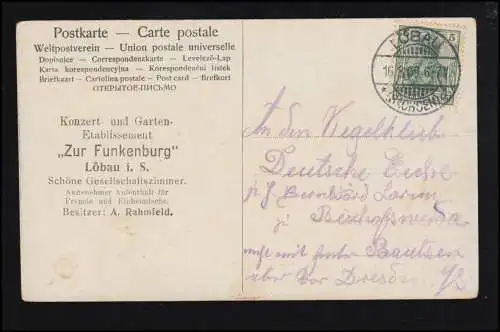 Postkarte — Carte postale
Weltpostverein — Union postale universelle
Dopisnice — Correspondenzkarte — Levelező-Lap
Karta korespondencyjna — Korespondenční lístek
Briefkaart — Cartolina postale — Post card — Brefkort
ОТКРЫТОЕ-ПИСЬМО
Konzert- und Garten-
Etablissement
„Zur Funkenburg"
Löbau i. S.
Schöne Gesellschaftszimmer.
Angenehmer Aufenthalt für
Fremde und Einheimische.
Besitzer: A. Rahmfeld.
5
LÖBAU
(SACHSEN)
An den Kegelklub
Deutsche Eiche
Bernhard
zu Bischofswerda
Bautzen
aber vor Dresden